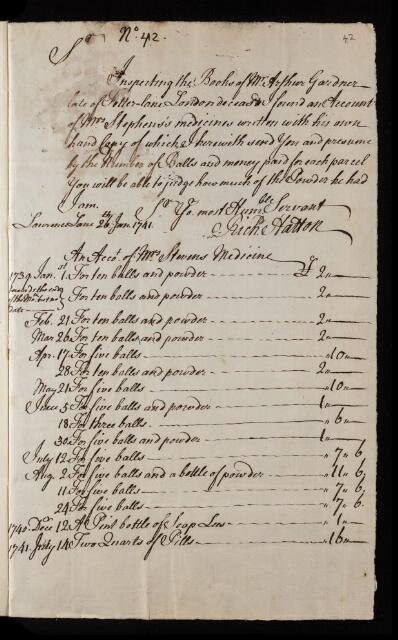 Sr No. 42. 42
Inspecting the Books of Mr. Arthur Gardner
late of Fetter-lane London deceas'd I found an Account
of Mrs Stephens's medicines written with his own
hand Copy of which I herewith send You and presume
by the Number of Balls and money paid for each parcel
You will be able to judge how much of the Powder he had
I am.
Sr Yo. most Humble Servant
Lawrence Lane 26th Jan. 1741. Richd Hatton
An Acct. of Mrs Stevens Medicine
1739. Jan. 1st For ten balls and powder £ 2 „
For ten balls and powder 2 „
date
Feb. 21 For ten balls and powder 2 „
Mar 26 For ten balls and powder 2 „
Apr. 17 For five balls „ 10 „
28 For ten balls and powder 2 „
May 21 For five balls „ 10 „
June 5 For five balls and powder 1 „
18 For three balls „ 6 „
30 For five balls and powder 1 „
July 12 For five balls „ 7 „ 6
Aug. 2 For five balls and a bottle of powder „ 11 „ 6
11 For five balls „ 7 „ 6
24 For five balls „ 7 „ 6.
1740. Decr 12 A Pint bottle of Soap Lees „ 1 „
1741. July 14 Two Quarts of Pills „ 16 „